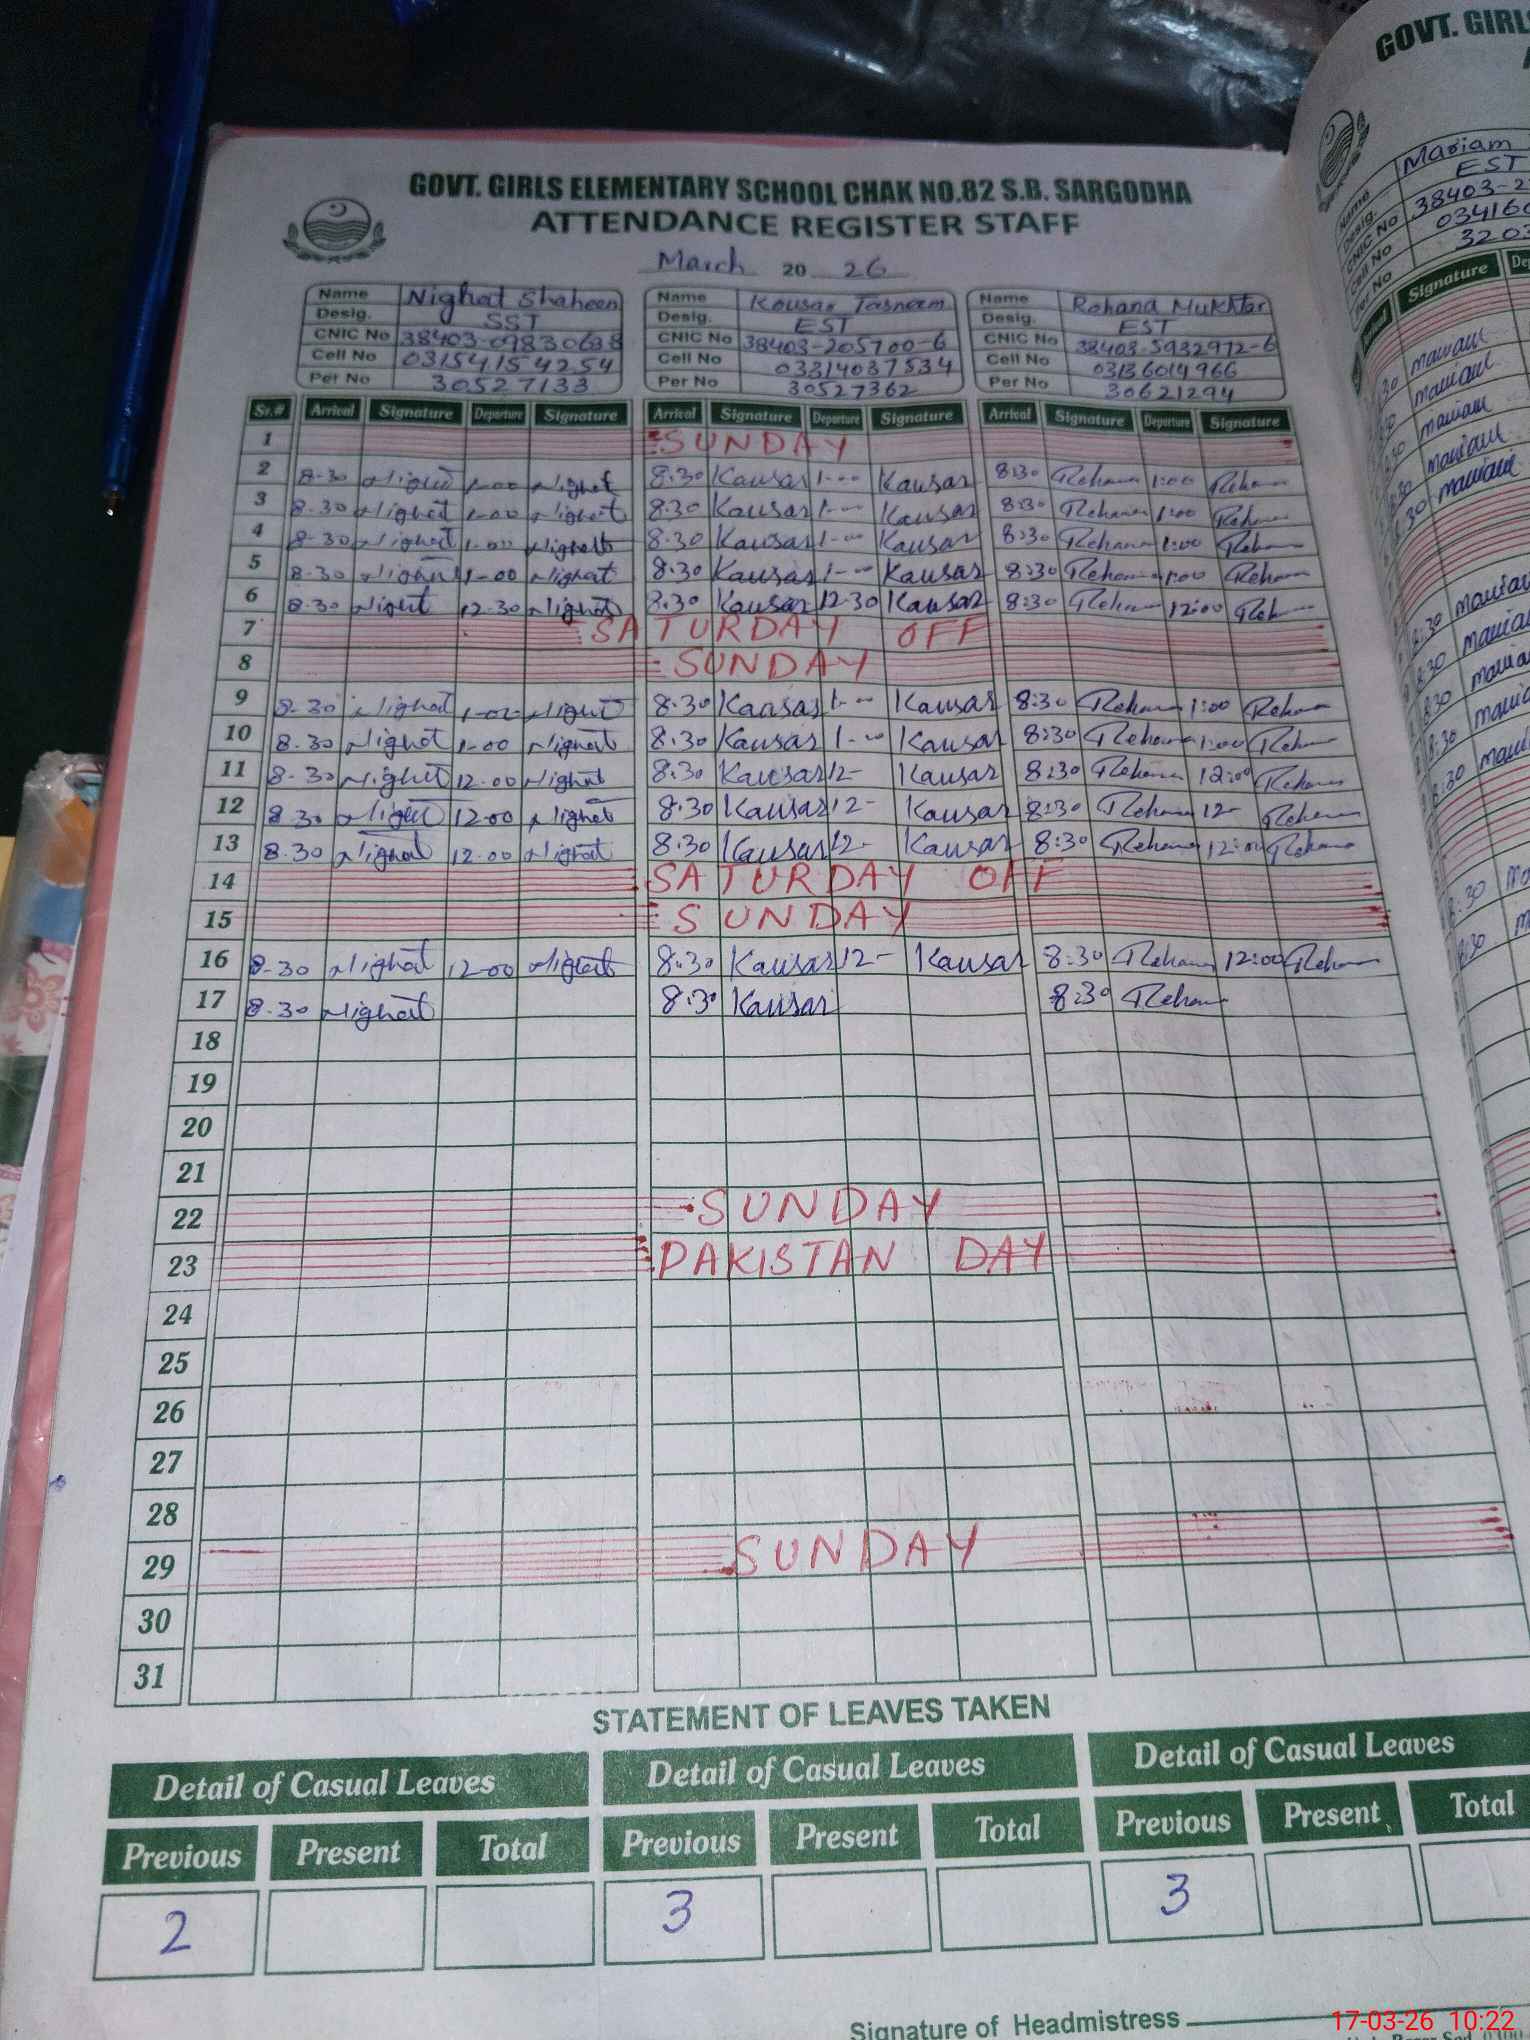 GOVT. GIRLS ELEMENTARY SCHOOL CHAK NO.82 S.B. SARGODHA
ATTENDANCE REGISTER STAFF
March 20 26
Name Nighat Shaheen Name Kousar Tasneem Name Rehana Mukhtar
Desig. SST Desig. EST Desig. EST
CNIC No CNIC No 38403-205700-6 CNIC No 38403-5932972-6
Cell No 03154154254 Cell No 03314037534 Cell No 03136014966
Per No 30527133 Per No 30527362 Per No 30621294
Sr.# Arrival Signature Departure Signature Arrival Signature Departure Signature Arrival Signature Departure Signature
1 SUNDAY
2 8-30 Nighat 1-00 Nighat 8:30 Kausar 1-00 Kausar 8:30 Rehana 1:00 Rehana
3 8-30 Nighat 1-00 Nighat 8:30 Kausar 1-00 Kausar 8:30 Rehana 1:00 Rehana
4 8-30 Nighat 1-00 Nighat 8.30 Kausar 1-00 Kausar 8:30 Rehana 1:00 Rehana
5 8-30 Nighat 1-00 Nighat 8:30 Kausar 1-00 Kausar 8:30 Rehana 1:00 Rehana
6 8-30 Nighat 12-30 Nighat 8.30 Kausar 12-30 Kausar 8:30 Rehana 12:00 Reh
7 SATURDAY OFF
8 SUNDAY
9 8-30 Nighat 1-00 Nighat 8:30 Kausar 1-00 Kausar 8:30 Rehana 1:00 Rehana
10 8-30 Nighat 1-00 Nighat 8:30 Kausar 1-00 Kausar 8:30 Rehana 1:00 Rehana
11 8-30 Nighat 12-00 Nighat 8:30 Kausar 12- Kausar 8:30 Rehana 12:00 Rehana
12 8-30 Nighat 12-00 Nighat 8:30 Kausar 12- Kausar 8:30 Rehana 12- Rehana
13 8-30 Nighat 12-00 Nighat 8:30 Kausar 12- Kausar 8:30 Rehana 12:00 Rehana
14 SATURDAY OFF
15 SUNDAY
16 8-30 Nighat 12-00 Nighat 8:30 Kausar 12- Kausar 8:30 Rehana 12:00 Rehana
17 8-30 Nighat 8:30 Kausar 8:30 Rehana
18
19
20
21
22 SUNDAY
23 PAKISTAN DAY
24
25
26
27
28
29 SUNDAY
30
31
STATEMENT OF LEAVES TAKEN
Detail of Casual Leaves Detail of Casual Leaves Detail of Casual Leaves
Previous Present Total Previous Present Total Previous Present Total
2 3 3
Signature of Headmistress
17-03-26 10:22
GOVT. GIRL
Name Mariam
Desig. EST
CNIC No 38403-2
Cell No 034160
Per No 3203
Signature